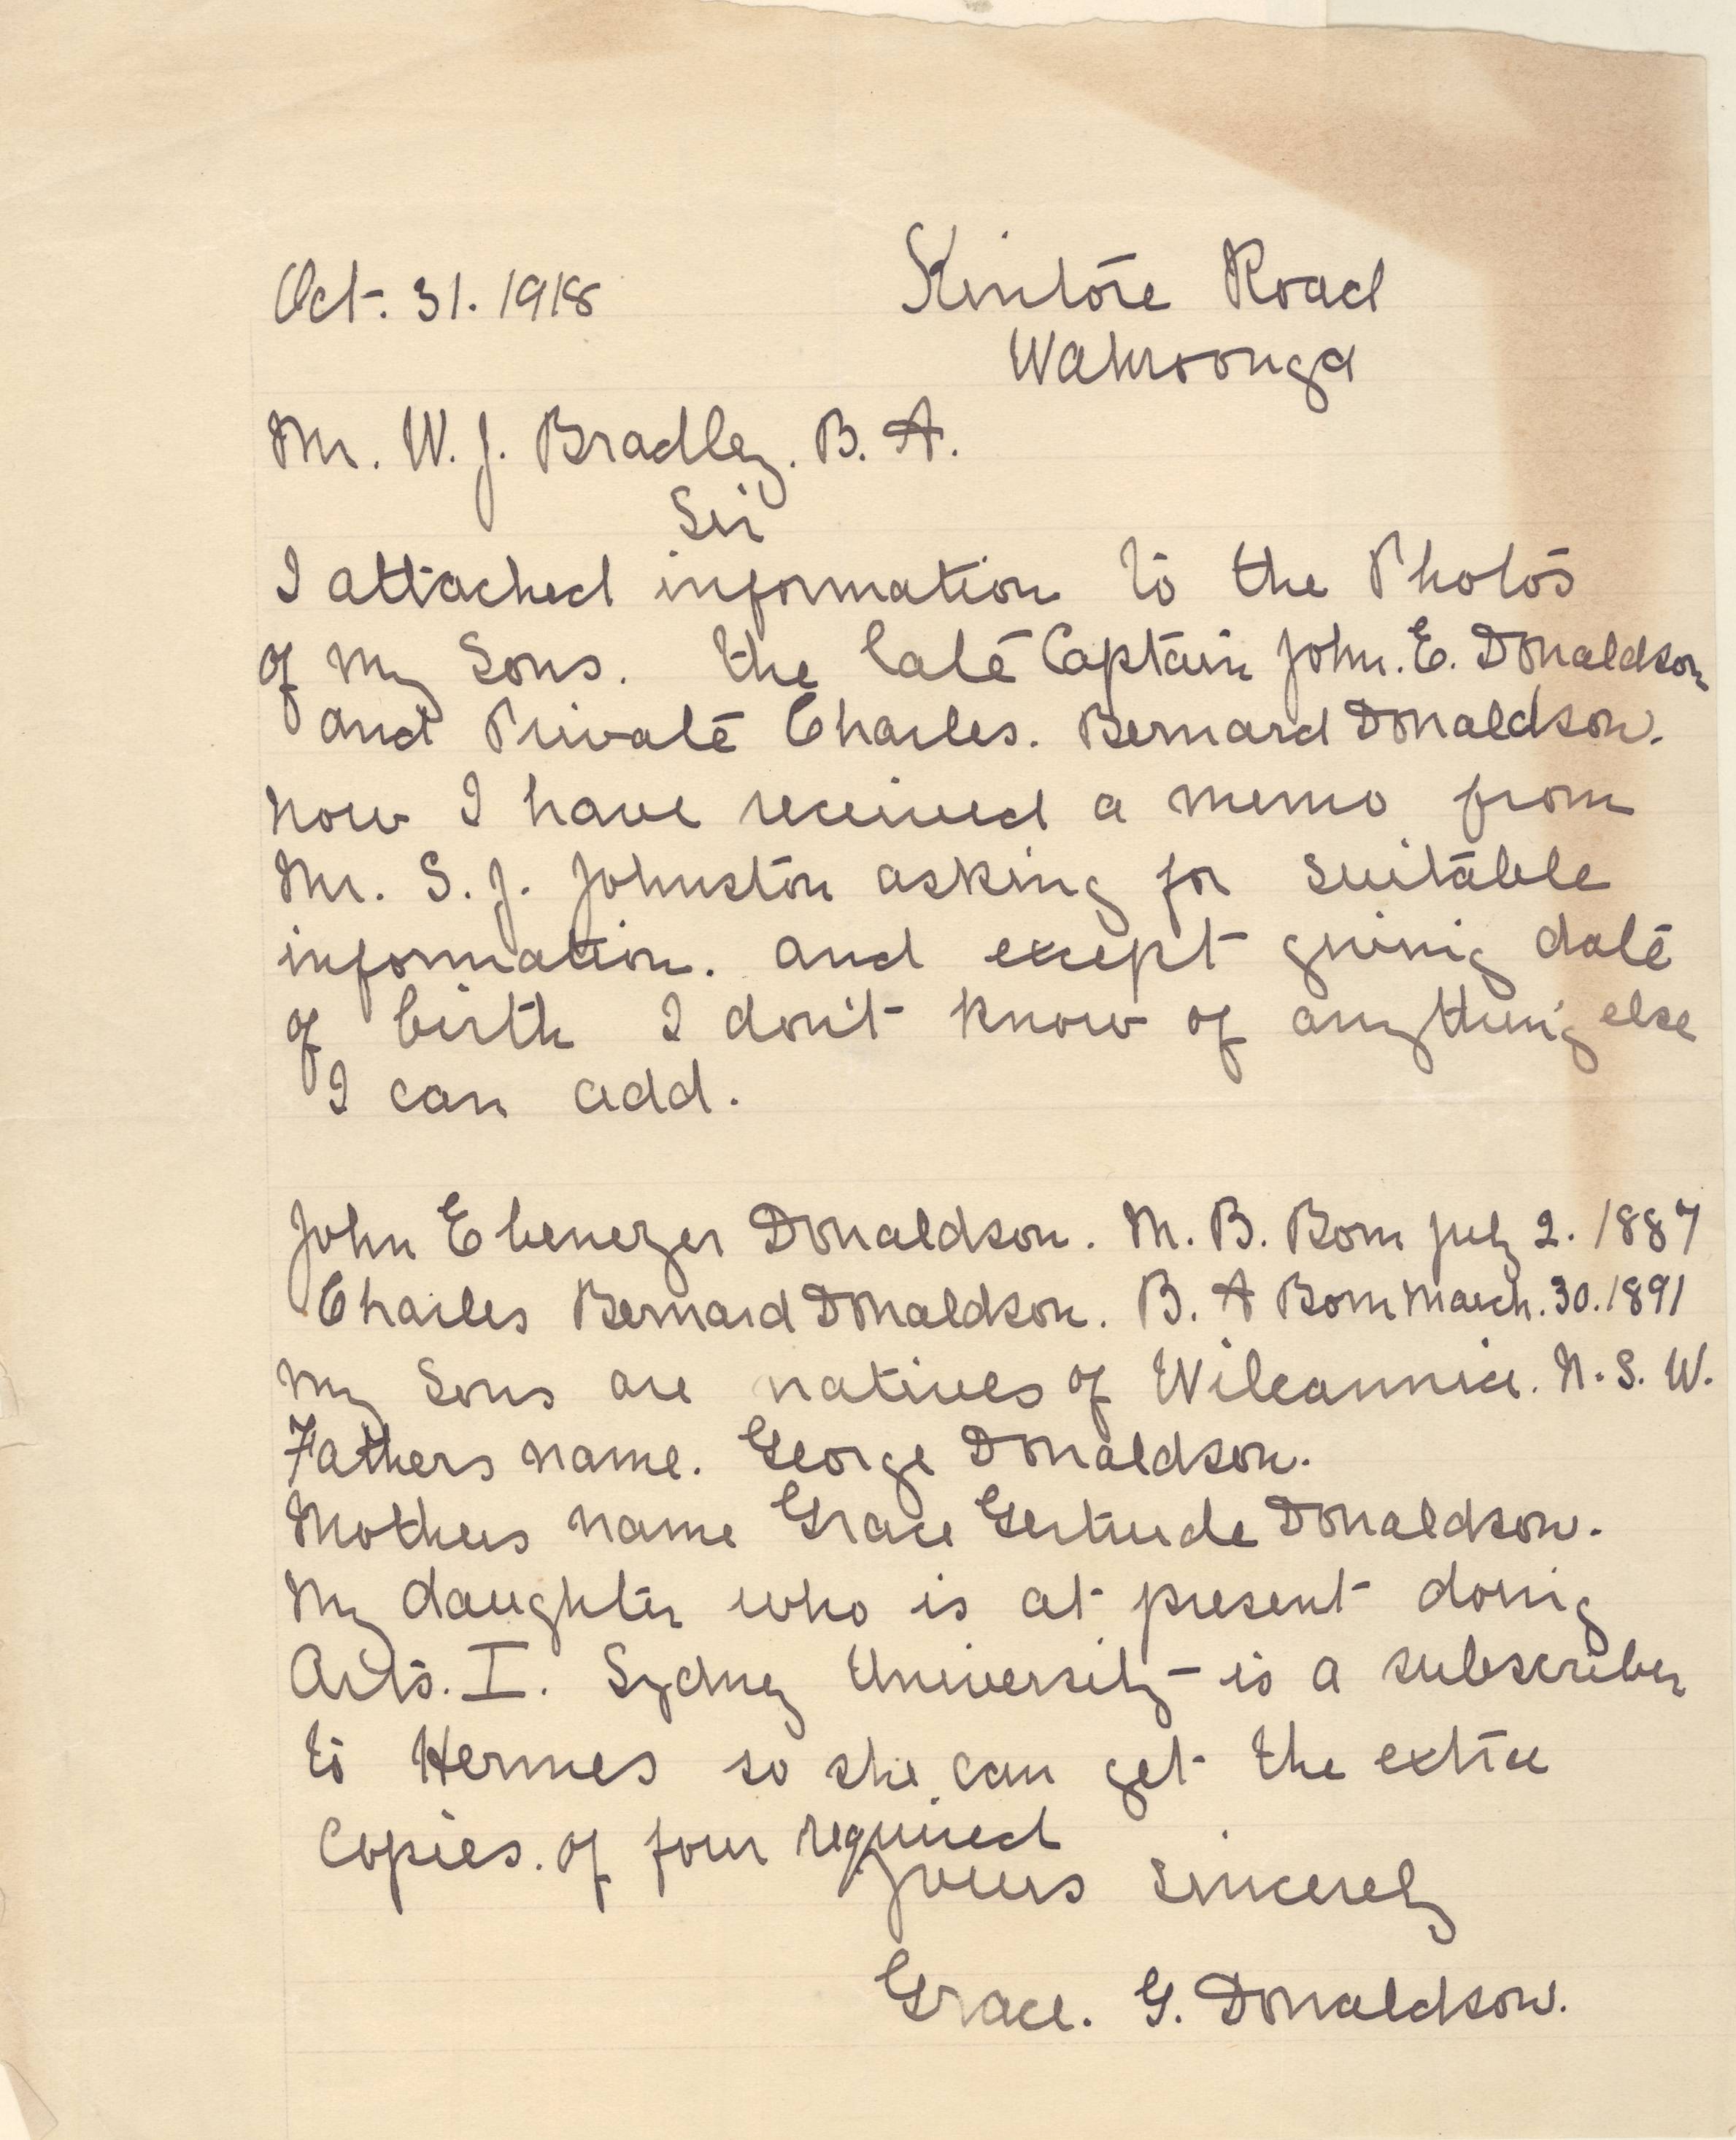 Oct. 31. 1918
Kintore Road
Wahroonga
Mr. W. J. Bradley. B. A.
Sir
I attached information to the Photos
of my Sons. the late Captain John. E. Donaldson
and Private Charles. Bernard Donaldson.
Now I have received a memo from
Mr. S. J. Johnston asking for suitable
information. and except giving date
of birth I don't know of anything else
I can add.
John Ebenezer Donaldson. M. B. Born July 2. 1887
Charles Bernard Donaldson. B. A Born March. 30. 1891
My Sons are natives of Wilcannia. N. S. W.
Fathers name. George Donaldson.
Mothers name Grace Gertrude Donaldson.
My daughter who is at present doing
Arts. I. Sydney University - is a subscriber
to Hermes so she can get the extra
Copies. of four required
Yours Sincerely
Grace. G. Donaldson.